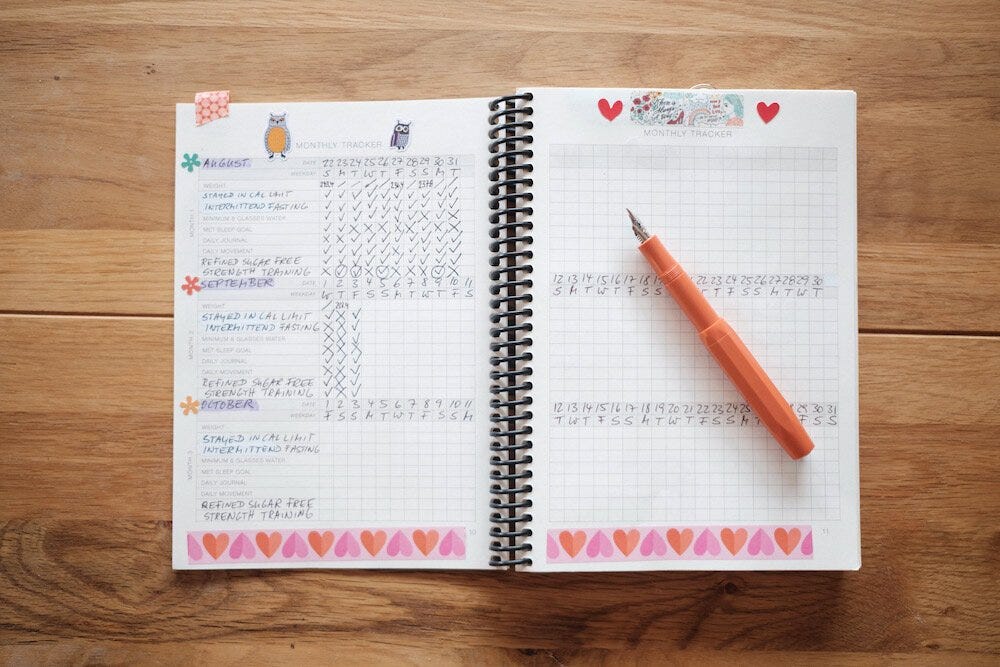 MONTHLY TRACKER
AUGUST DATE 22 23 24 25 26 27 28 29 30 31
WEEKDAY S M T W T F S S M T
WEIGHT
STAYED IN CAL LIMIT
INTERMITTEND FASTING
MINIMUM 8 GLASSES WATER
MET SLEEP GOAL
DAILY JOURNAL
DAILY MOVEMENT
REFINED SUGAR FREE
STRENGTH TRAINING
MONTH 1
SEPTEMBER DATE 1 2 3 4 5 6 7 8 9 10 11
WEEKDAY W T F S S M T W T F S
WEIGHT
STAYED IN CAL LIMIT
INTERMITTEND FASTING
MINIMUM 8 GLASSES WATER
MET SLEEP GOAL
DAILY JOURNAL
DAILY MOVEMENT
REFINED SUGAR FREE
STRENGTH TRAINING
MONTH 2
OCTOBER DATE 1 2 3 4 5 6 7 8 9 10 11
WEEKDAY F S S M T W T F S S M
WEIGHT
STAYED IN CAL LIMIT
INTERMITTEND FASTING
MINIMUM 8 GLASSES WATER
MET SLEEP GOAL
DAILY JOURNAL
DAILY MOVEMENT
REFINED SUGAR FREE
STRENGTH TRAINING
MONTH 3
10
MONTHLY TRACKER
12 13 14 15 16 17 18 22 23 24 25 26 27 28 29 30
S M T W T F S T F S S M T W T
12 13 14 15 16 17 18 19 20 21 22 23 24 25 28 29 30 31
T W T F S S M T W T F S S T F S S
11